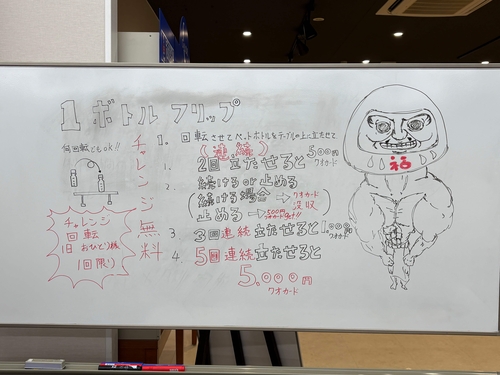 1 ボトルフリップ
何回転でもok!!
チャレンジ無料
1. 回転させてペットボトルをテーブルの上に立たせて
(連続)
2回立たせると500円
クオカード
2. 続ける or 止める
(続ける場合→クオカード没収
止める→500円
3 3回連続立たせると1,000円
クオカード
4. 5回連続立たせると
5,000円
クオカード
チャレンジ
回転
1日おひとり様
1回限り
福